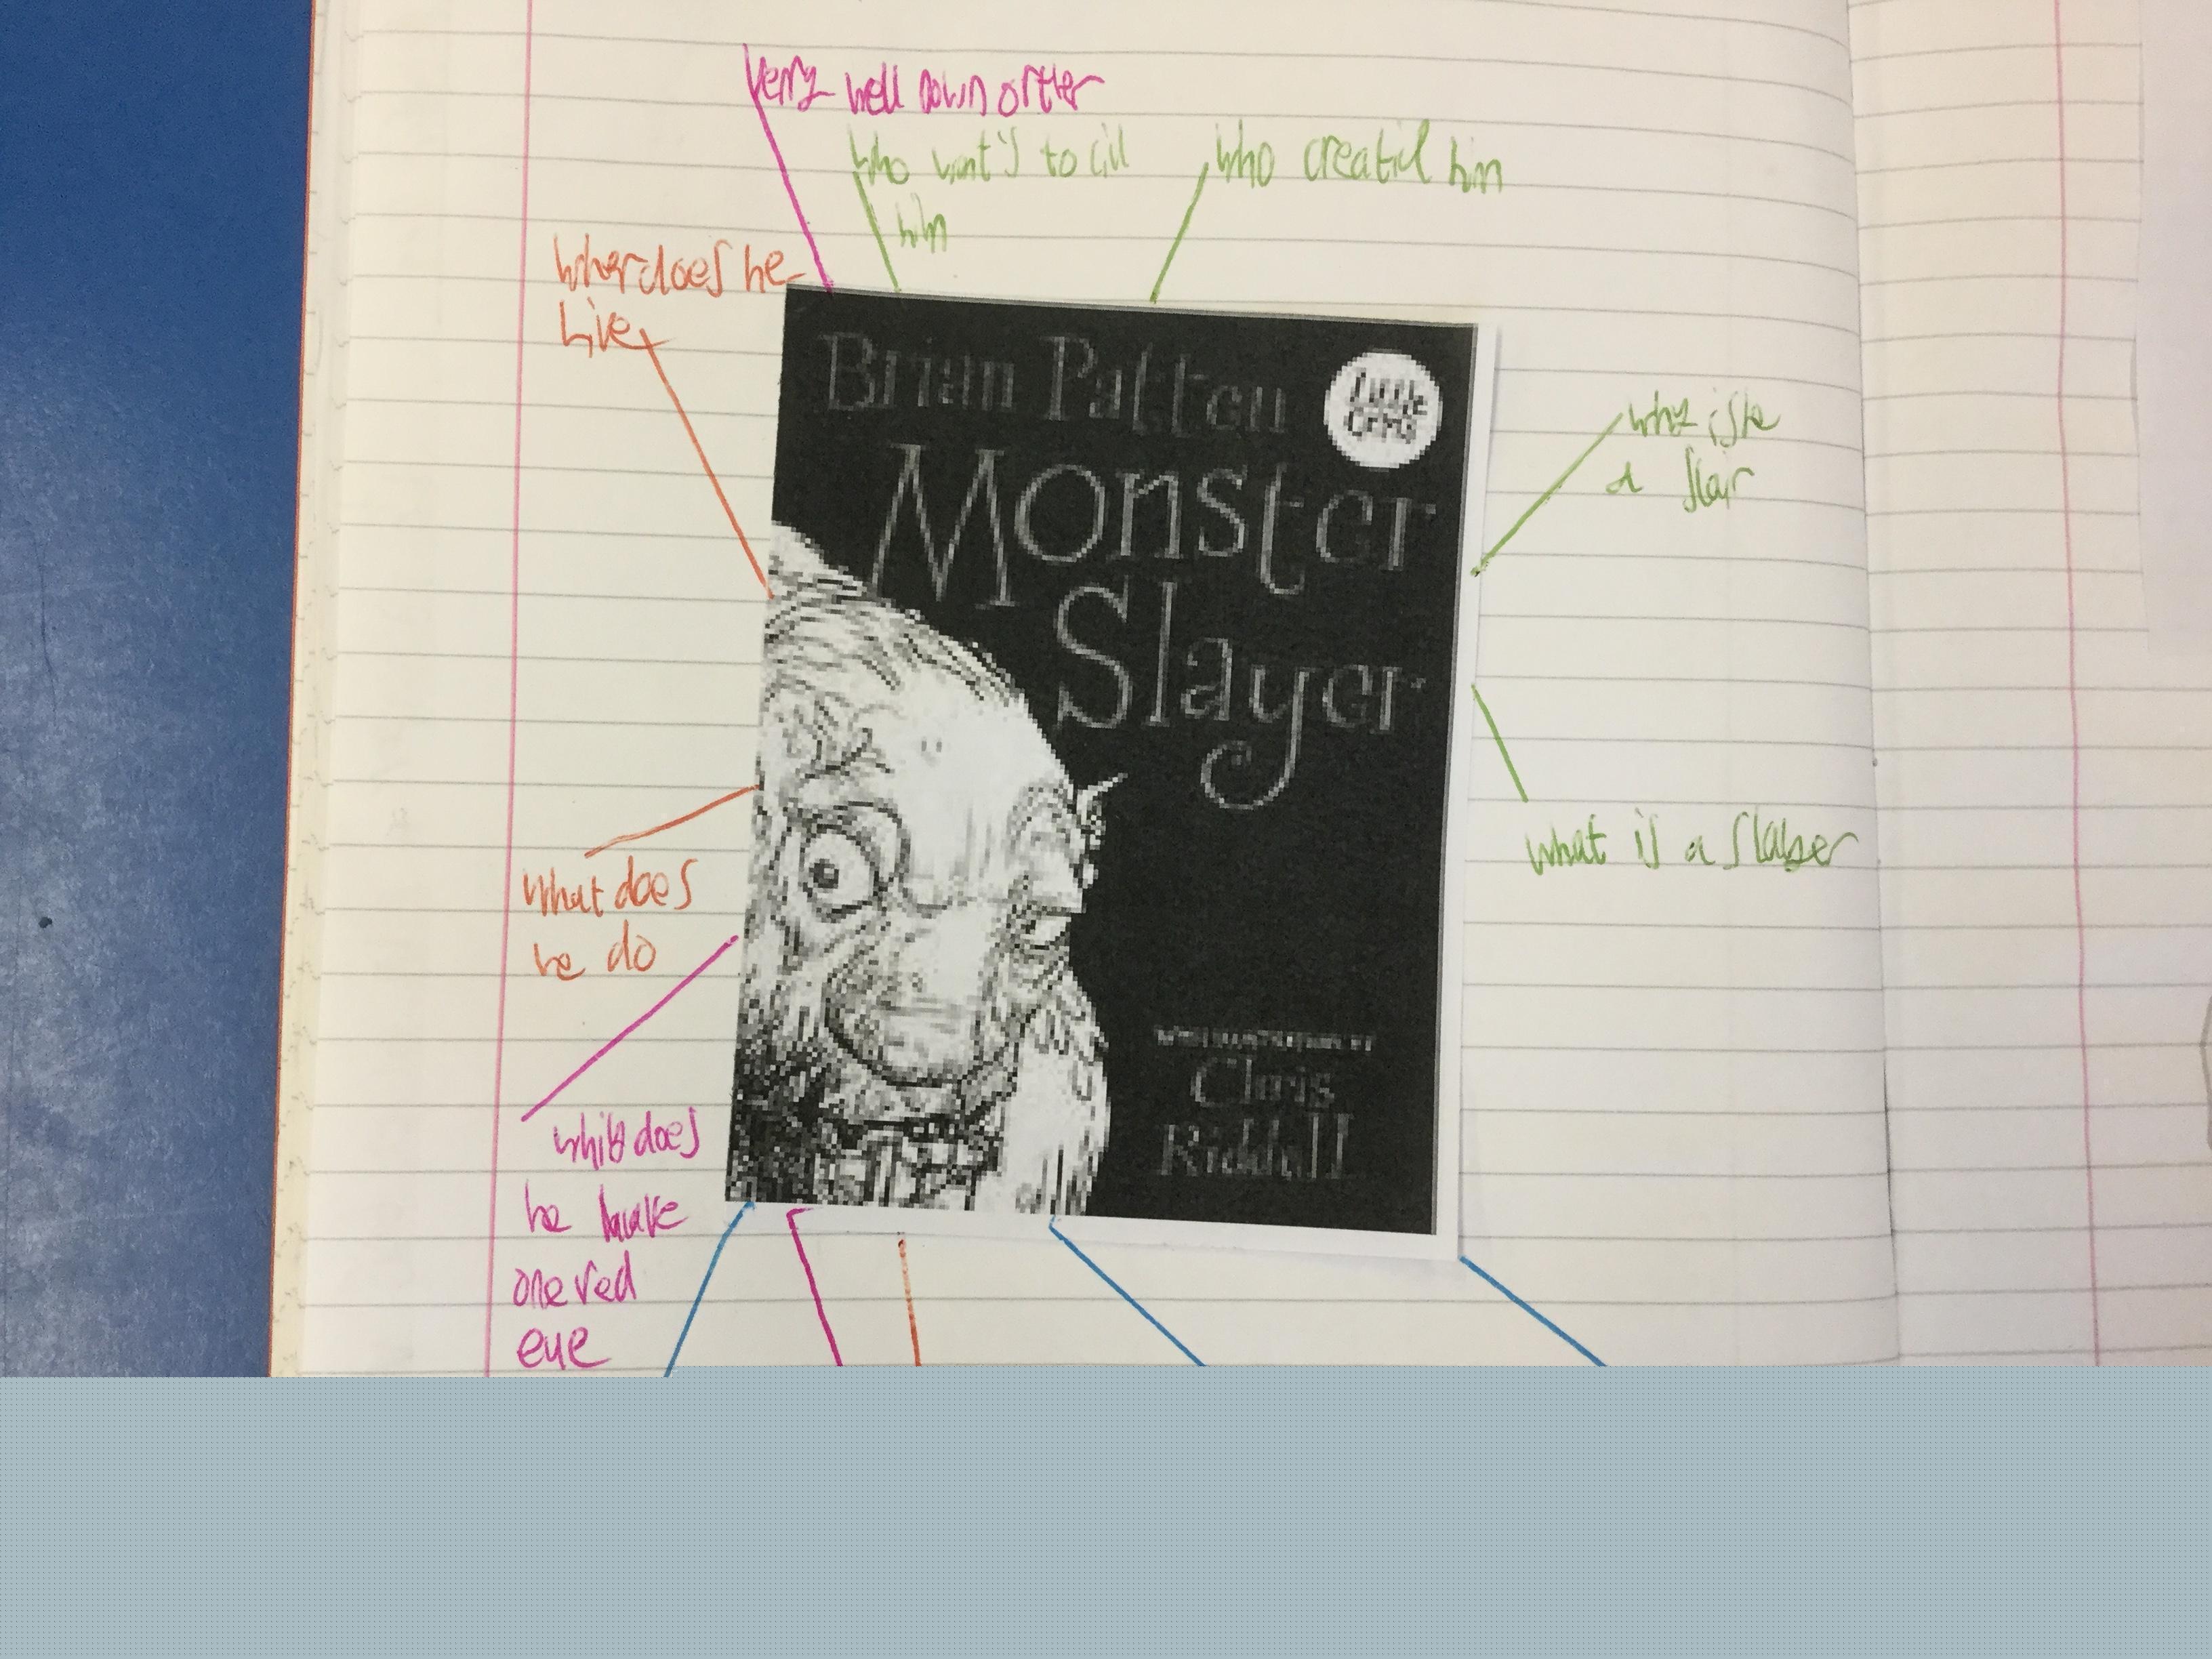 very well down orther
who want's to cill
him
who creatid him
wher does he
live
Brian Patten
Little
Gems
Monster
Slayer
why is he
a slair
what is a slayer
what does
he do
whiy does
he have
one red
eye
WITH ILLUSTRATIONS BY
Chris
Riddell